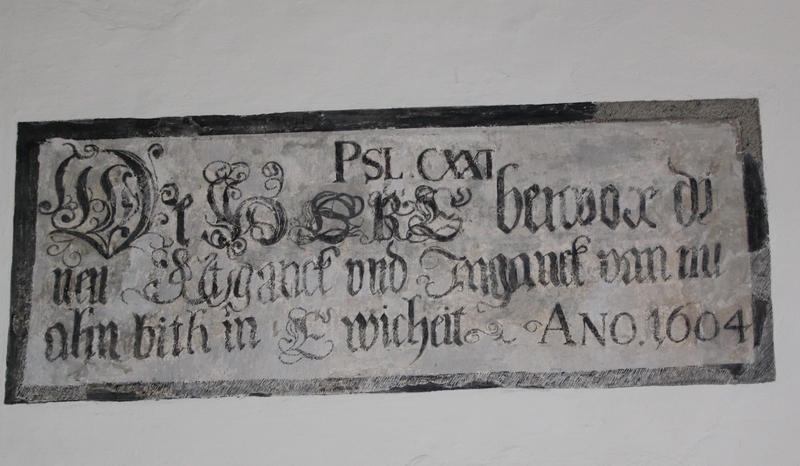 PSL. CXXI
De HERE berwore di
nen Wtganck vnd Inganck van nu
ahn bith in Ewicheit ANO. 1604